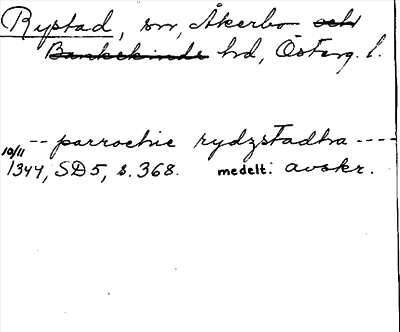 Rystad, sn, Åkerbo och
Bankekinds hd, Österg. l.
-- parrochie rydzstadha ----
10/11
1344, SD5, s. 368. medelt. avskr.